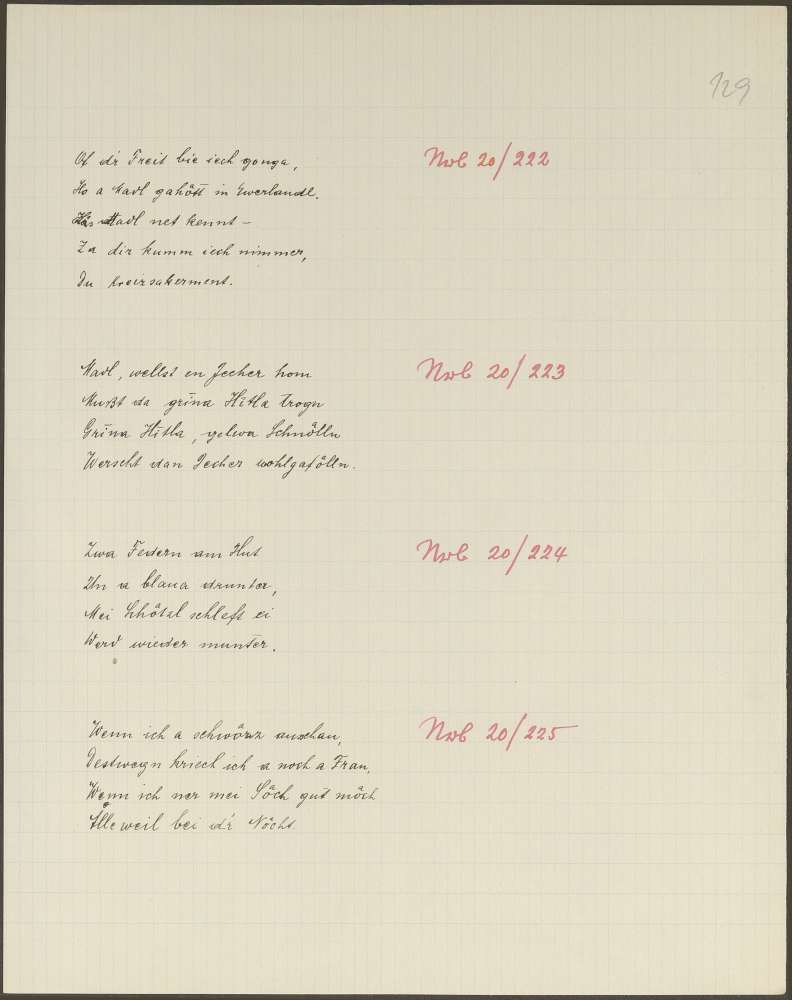 129
Of dr Freit bie iech gonga,
Ho a Madl gahött in Ewerlandl.
Madl net kennt –
Za dir kumm iech nimmer,
Du
Nwb 20/222
Madl, wellst en Jecher hom
Mußt da grina Hitla trogn
Grina Hitla, gelwa Schnölln
Werscht dan Jecher wohlgafölln.
Nwb 20/223
Zwa Federn am Hut
Un a blaua drunter,
Mei Schötzl schleft ei
Werd wieder munter.
Nwb 20/224
Wenn ich a schwörz auschau,
Destwegn kriech ich a noch a Frau,
Wenn ich ner mei Söch gut möch
Alleweil bei dr Nöcht.
Nwb 20/225